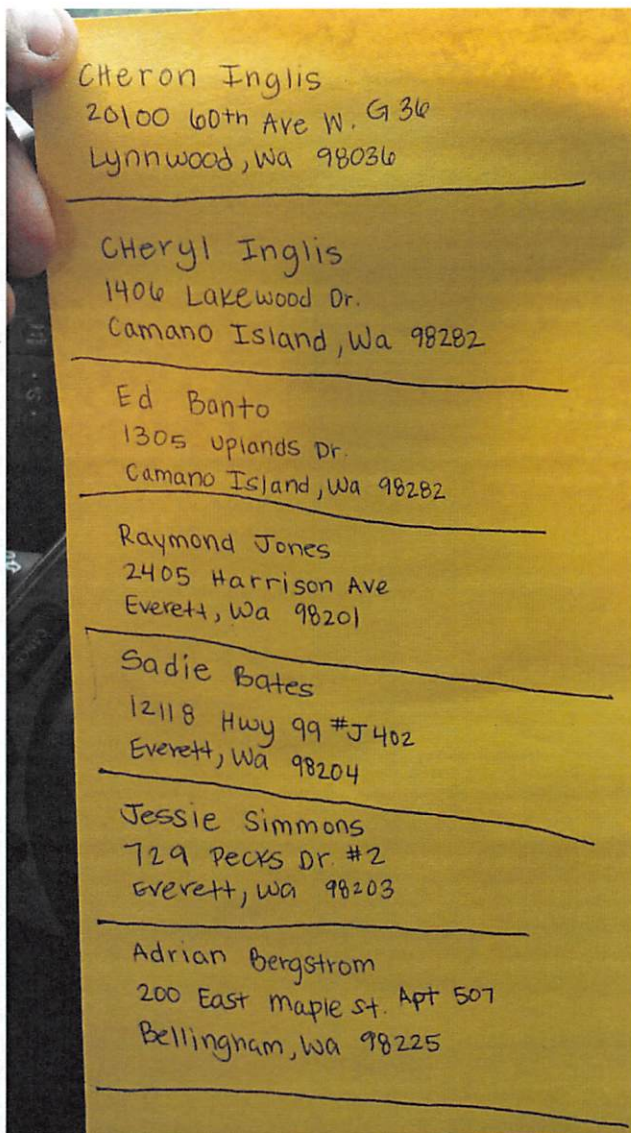 CHeron Inglis
20100 60th Ave W. G36
Lynnwood, Wa 98036
CHeryl Inglis
1406 Lakewood Dr.
Camano Island, Wa 98282
Ed Banto
1305 Uplands Dr.
Camano Island, Wa 98282
Raymond Jones
2405 Harrison Ave
Everett, Wa 98201
Sadie Bates
12118 Hwy 99 #J402
Everett, Wa 98204
Jessie Simmons
729 Pecks Dr. #2
Everett, Wa 98203
Adrian Bergstrom
200 East Maple St. Apt 507
Bellingham, Wa 98225